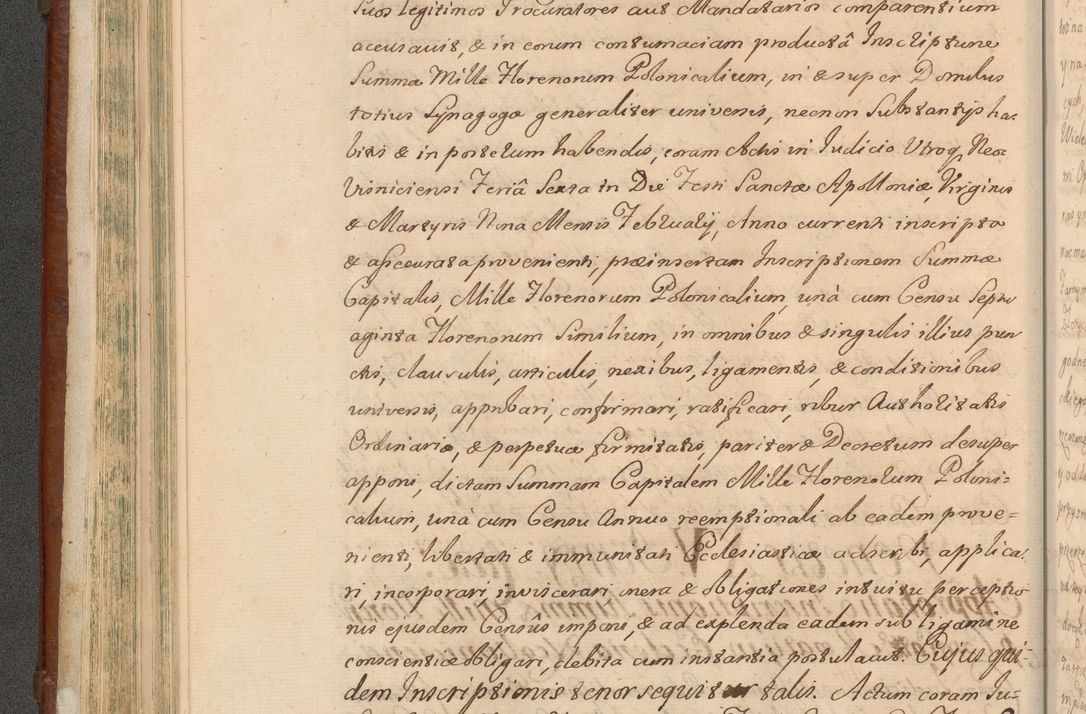 suos legitimos Procuratores aut Mandatarios comparentium
accusavit, & in eorum contumaciam productâ Inscriptione
Summæ Mille Florenorum Polonicalium, in & super Domibus
totius Synagogæ generaliter universis, necnon Substantijs ha-
bitis & in posterum habendis, coram Actis in Judicio Utroq, Neo-
Visniciensi Feriâ Sexta in Die Festi Sanctæ Apolloniæ, Virginis
& Martyris Nona Mensis Februarij, Anno currenti inscripta
& assecurata provenienti, præinsertam Inscriptionem Summæ
Capitalis, Mille Florenorum Polonicalium, unà cum Censu Septu-
aginta Florenorum Similium, in omnibus & singulis illius pun-
ctis, clausulis, articulis, nexibus, ligamentis, & conditionibus
universis, approbari, confirmari, ratificari, robur Authoritatis
Ordinariæ, & perpetuæ firmitatis, pariter & Decretum desuper
apponi, dictam Summam Capitalem Mille Florenorum Poloni=
calium, unà cum Censu Annuo reemptionali ab eadem prove=
nienti, libertati & immunitati Ecclesiasticæ adscribi, applica-
ri, incorporari, inviscerari, onera & obligationes intuitu perceptio
nis ejusdem Censûs imponi, & ad explenda eadem sub ligamine
conscientiæ obligari, debita cum instantia postulavit. Cujus qui-
dem Inscriptionis tenor sequitur talis. Actum coram Ju=